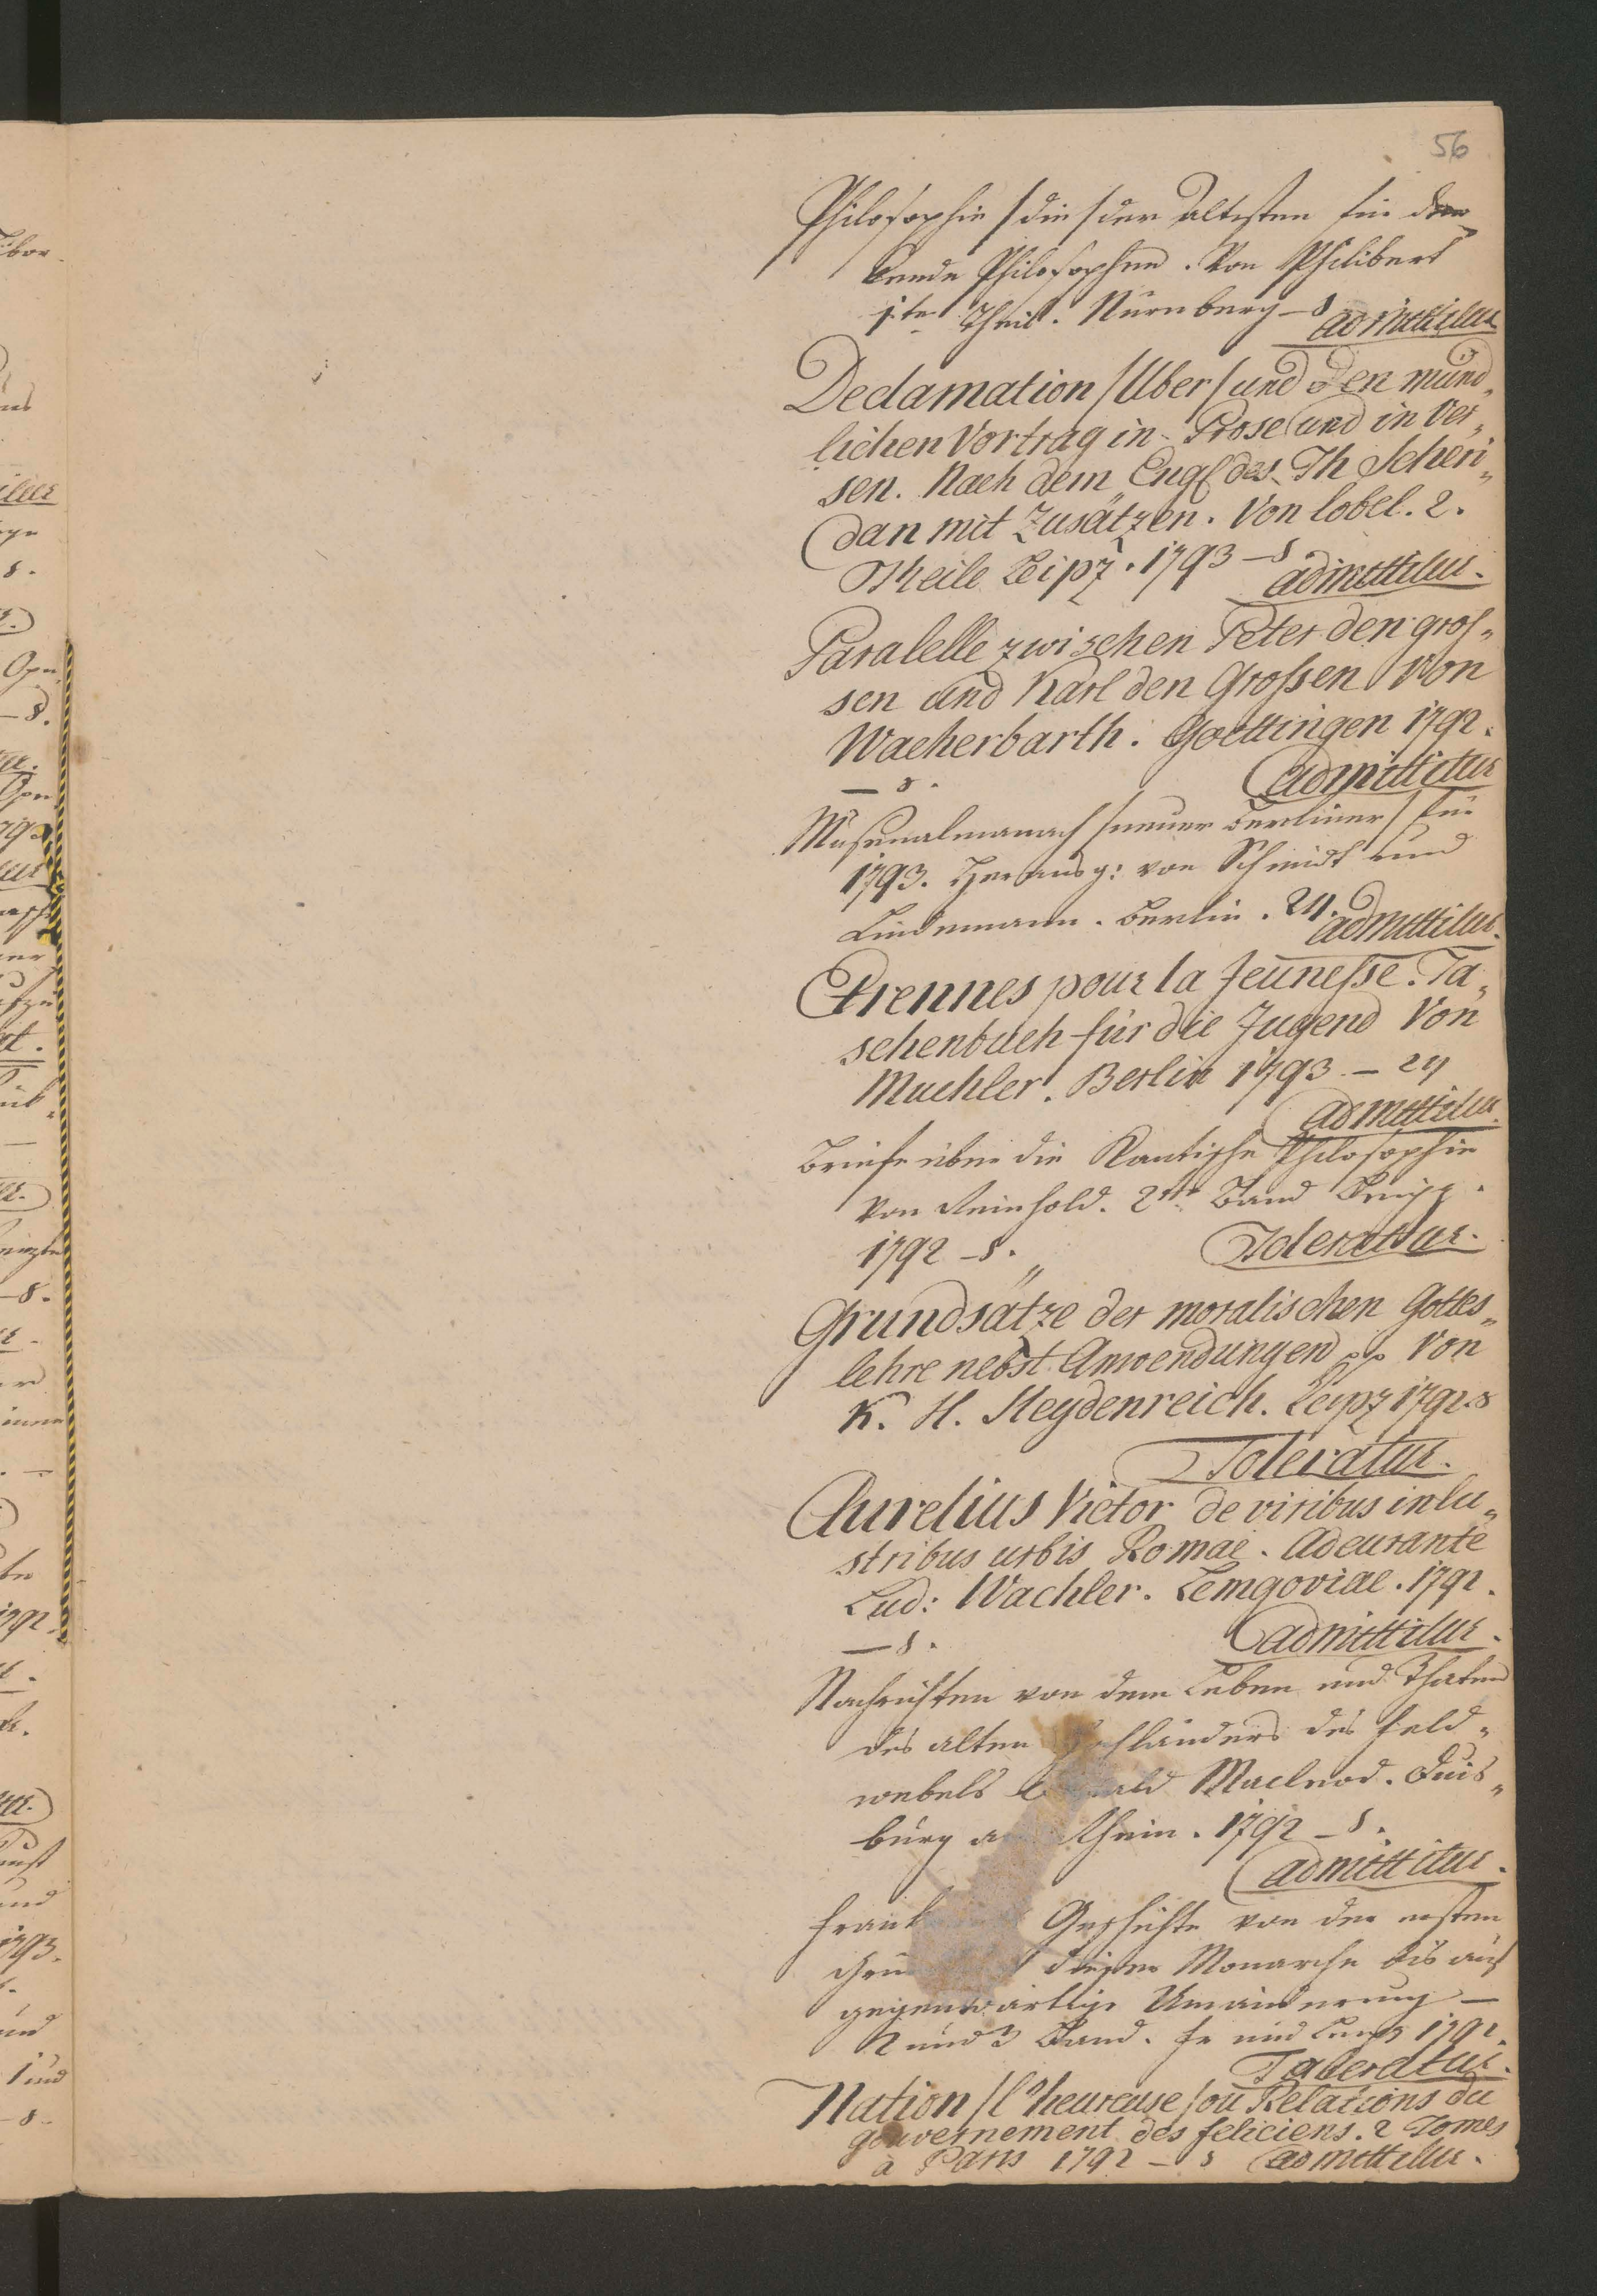 56
Philosophie /die/ der altesten für den
kende Philosophen. Von Philibert
1.te Theil. Nürnberg – 8
admittitur
Declamation /Uber/ und den münd„
lichen Vortrag in Prose und in Ver„
sen. Nach dem Engl des Th Scheri„
dan mit Zusätzen. Von lobel. 2.
Theile Leipz. 1793 – 8.
admittitur.
Paralelle zwischen Peter den gros„
sen und Karl den Grossen Von
Wacherbarth. Goettingen 1792.
– 8.
admittitur
Musenalmanach /neuer Berliner/ für
1793. Herausg: von Schmidt und
Lindemann. Berlin. 24.
admittitur.
Etrennes pour la Jeunesse. Ta„
schenbuch für die Jugend Von
Muchler. Berlin 1793 – 24
admittitur.
Briefe über die Kantische Philosophie
von Reinhold. 2te Band Leipz.
1792 – 8.
Toleratur.
Grundsätze der moralischen Gottes„
lehre nebst Anwendungen pp Von
K. H. Heydenreich. Leipz 1792. 8
Toleratur.
Aurelius Victor de viribus inlu„
stribus urbis Romae. Adcurante
Lud: Wachler. Lemgoviae. 1792.
– 8.
admittitur.
Nachrichten von dem Leben und Thaten
des alten Hochländers des Feld„
webels Macleod. Duis„
burg am Rhein. 1792 – 8.
admittitur.
Geschichte von der ersten
dieser Monarche bis auf
gegenwärtige Umänderung –
2 und 3 Band. Fr und Leipz 1792.
Toleratur.
Nation /l'heureuse/ ou Relations du
gouvernement des feliciens. 2 Tomes
à Paris 1792 – 8 admittitur.